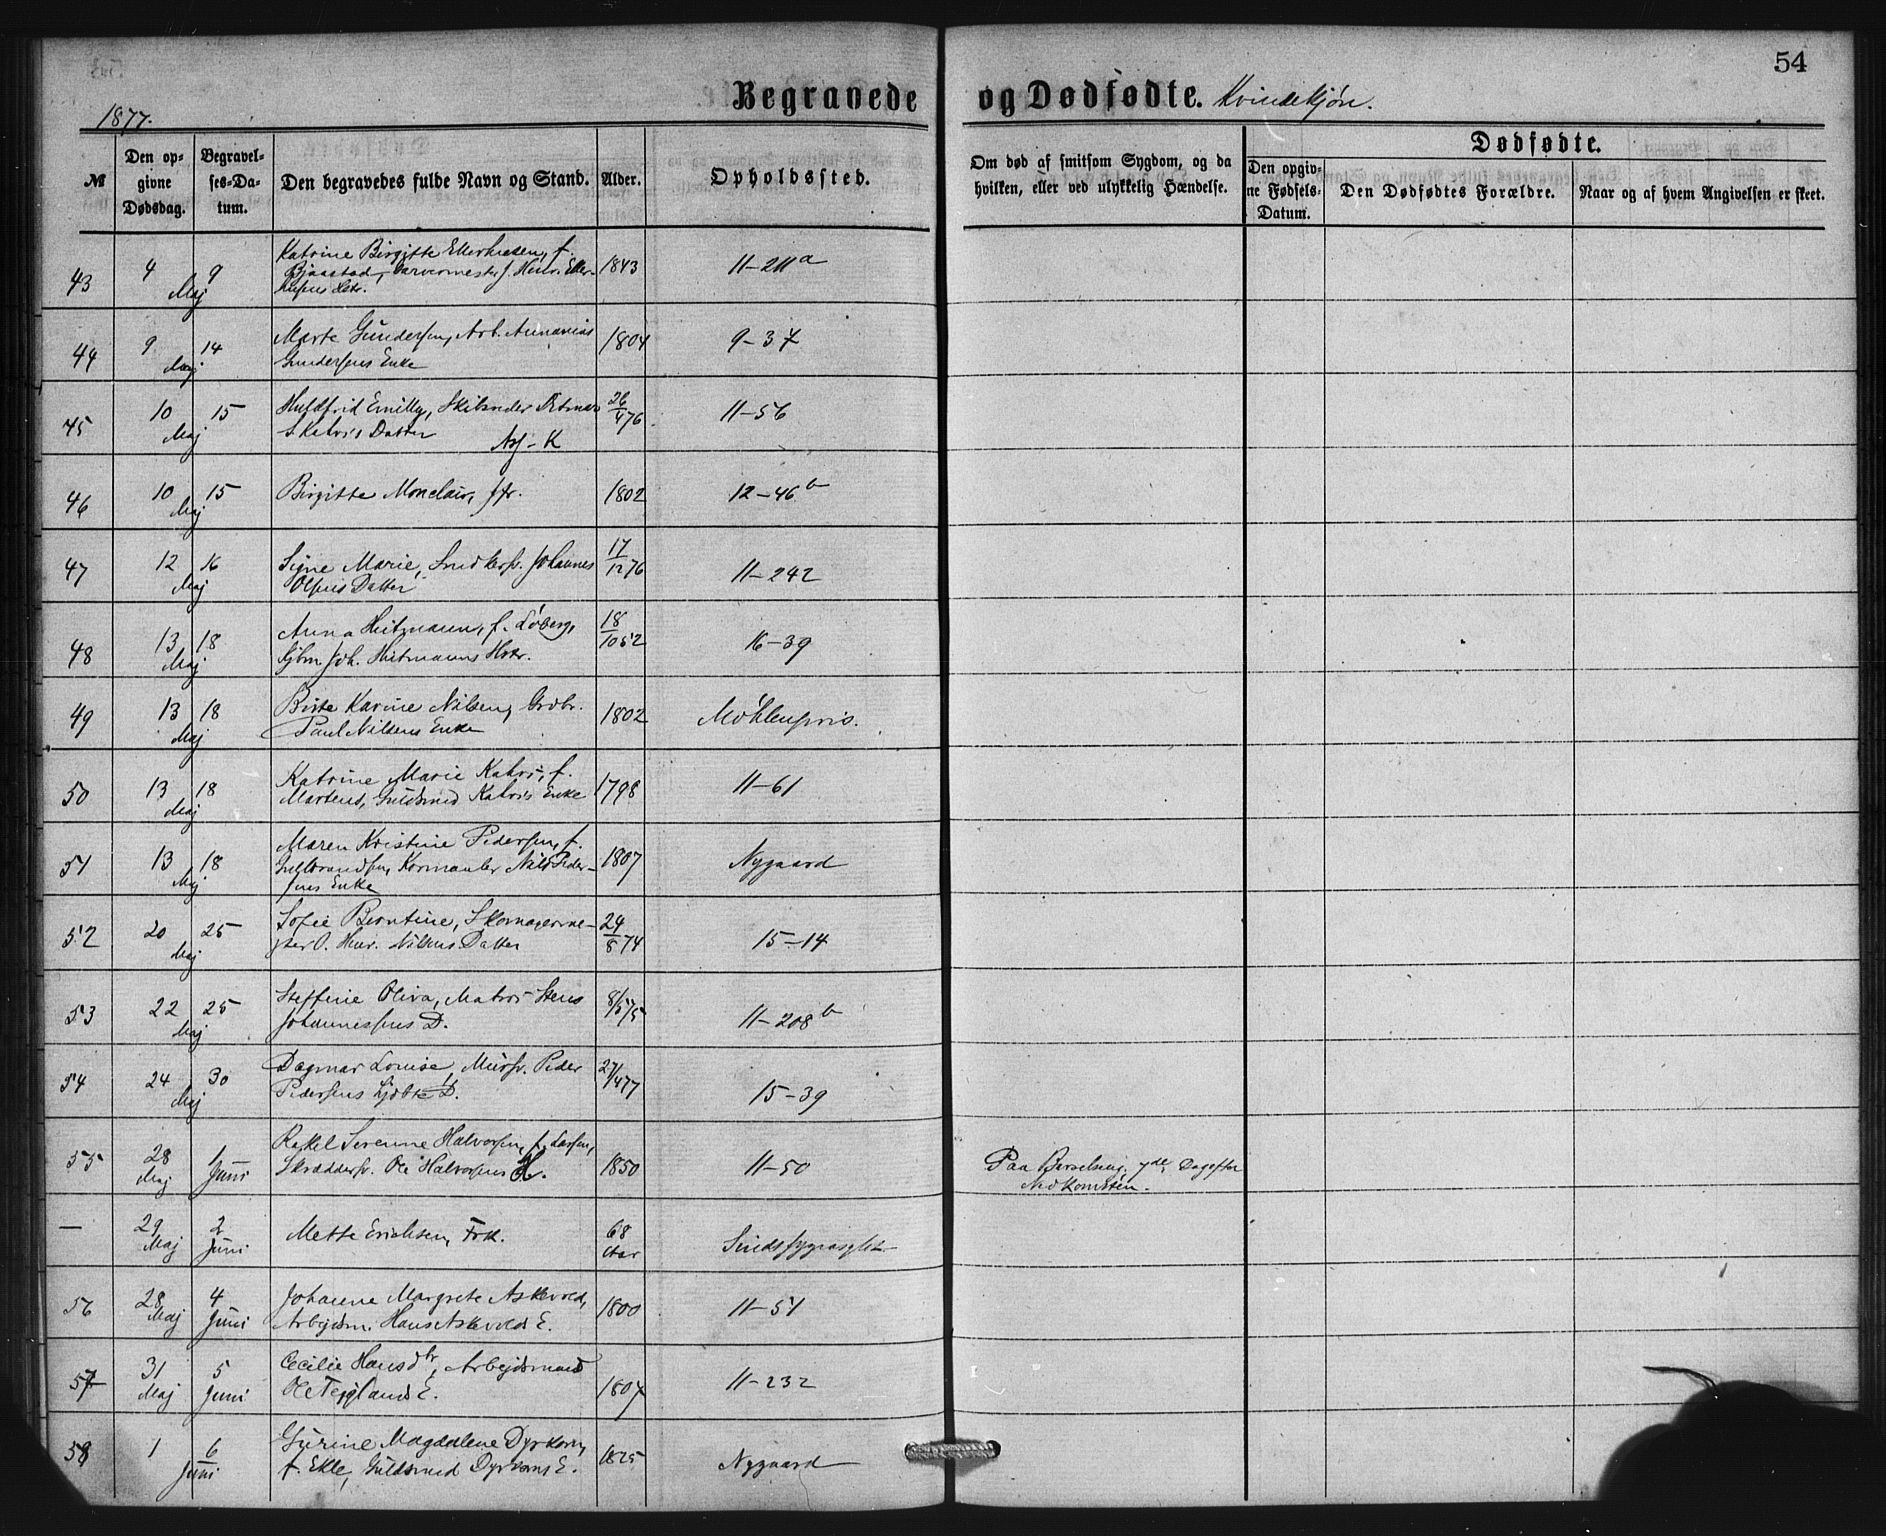 54
1877.
Begravede og Dødfødte. Kvindekjøn.
№
Den opgivne Dødsdag.
Begravelses-Datum.
Den begravedes fulde Navn og Stand.
Alder.
Opholdssted.
Om død af smitsom Sygdom, og da hvilken, eller ved ulykkelig Hændelse.
Dødfødte.
Den opgivne Fødsels-Datum.
Den Dødfødtes Forældre.
Naar og af hvem Angivelsen er skeet.
43 4 9 Maj Katrine Birgitte f. 1843 11-211a
44 9 14 Maj Marte Gundersen, Arb. Annanias 1804 9-37
Gundersens Enke
45 10 15 Maj Huldfrid Emilly, 26/4 76 11-56
Kahrs Datter
46 10 15 Maj Birgitte Monclair, Jfr. 1802 12-46b
47 12 16 Maj Signe Marie, Snedkersv. Johannes 17/12 76 11-242
Olsens Datter
48 13 18 Maj Anna Heitmann, f. Løberg, 18/10 52 16-39
Joh. Heitmanns Hstr.
49 13 18 Maj Birte Karine Nilsen, Grdbr. 1802 Møhlenpris.
Paul Nilsens Enke
50 13 18 Maj Katrine Marie Kahrs, f. 1798 11-61
Martens, Guldsmed Kahrs Enke
51 13 18 Maj Maren Kristine Pedersen, f. 1807 Nygaard
Gulbrandsen, Nils Pedersens Enke
52 20 25 Maj Sofie Berntine, Skomagermester O. Henr. Nilsens Datter 24/8 74 15-14
53 22 25 Maj Steffine Oliva, Matros Stens 8/5 75 11-208b
Johannessens D.
54 24 30 Maj Dagmar Louise, Mursv. Peder 27/4 77 15-39
Pedersens D.
55 28 Maj 1 Juni Rakel Serenne Halvorsen, f. Larsen, 1850 11-50 Paa Barselseng, 7de Dag efter
Skræddersv. Ole Halvorsens H. Nedkomsten.
— 29 Maj 2 Juni Mette Erichsen, Frk. 68 Aar Sindssygeasylet
56 28 Maj 4 Juni Johanne Margrete Askevold, 1800 11-51
Arbejdsm. Hans Askevolds E.
57 31 Maj 5 Juni Cecilie Hansdtr, Arbejdsmand 1807 11-232
Ole Teiglands E.
58 1 6 Juni Gurine Magdalene Dyrkorn, 1825 Nygaard
f. Ekle, Guldsmed Dyrkorns E.